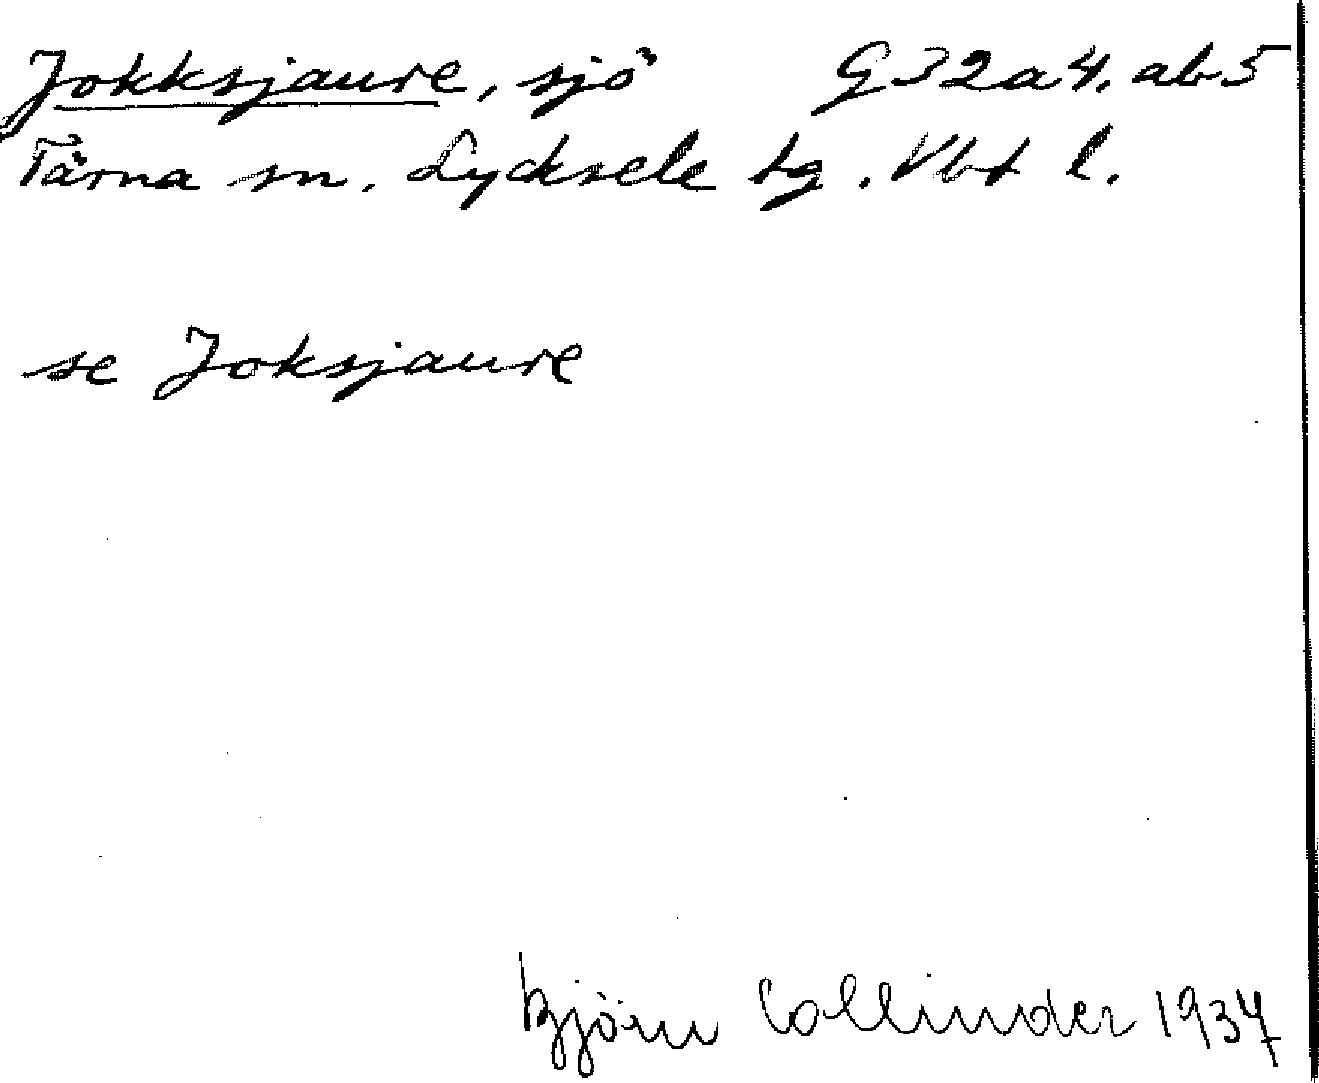 Jokksjaure, sjö G32a4, ab5
Tärna sn. Lycksele tg. Vbt l.
se Joksjaure
Björn Collinder 1937